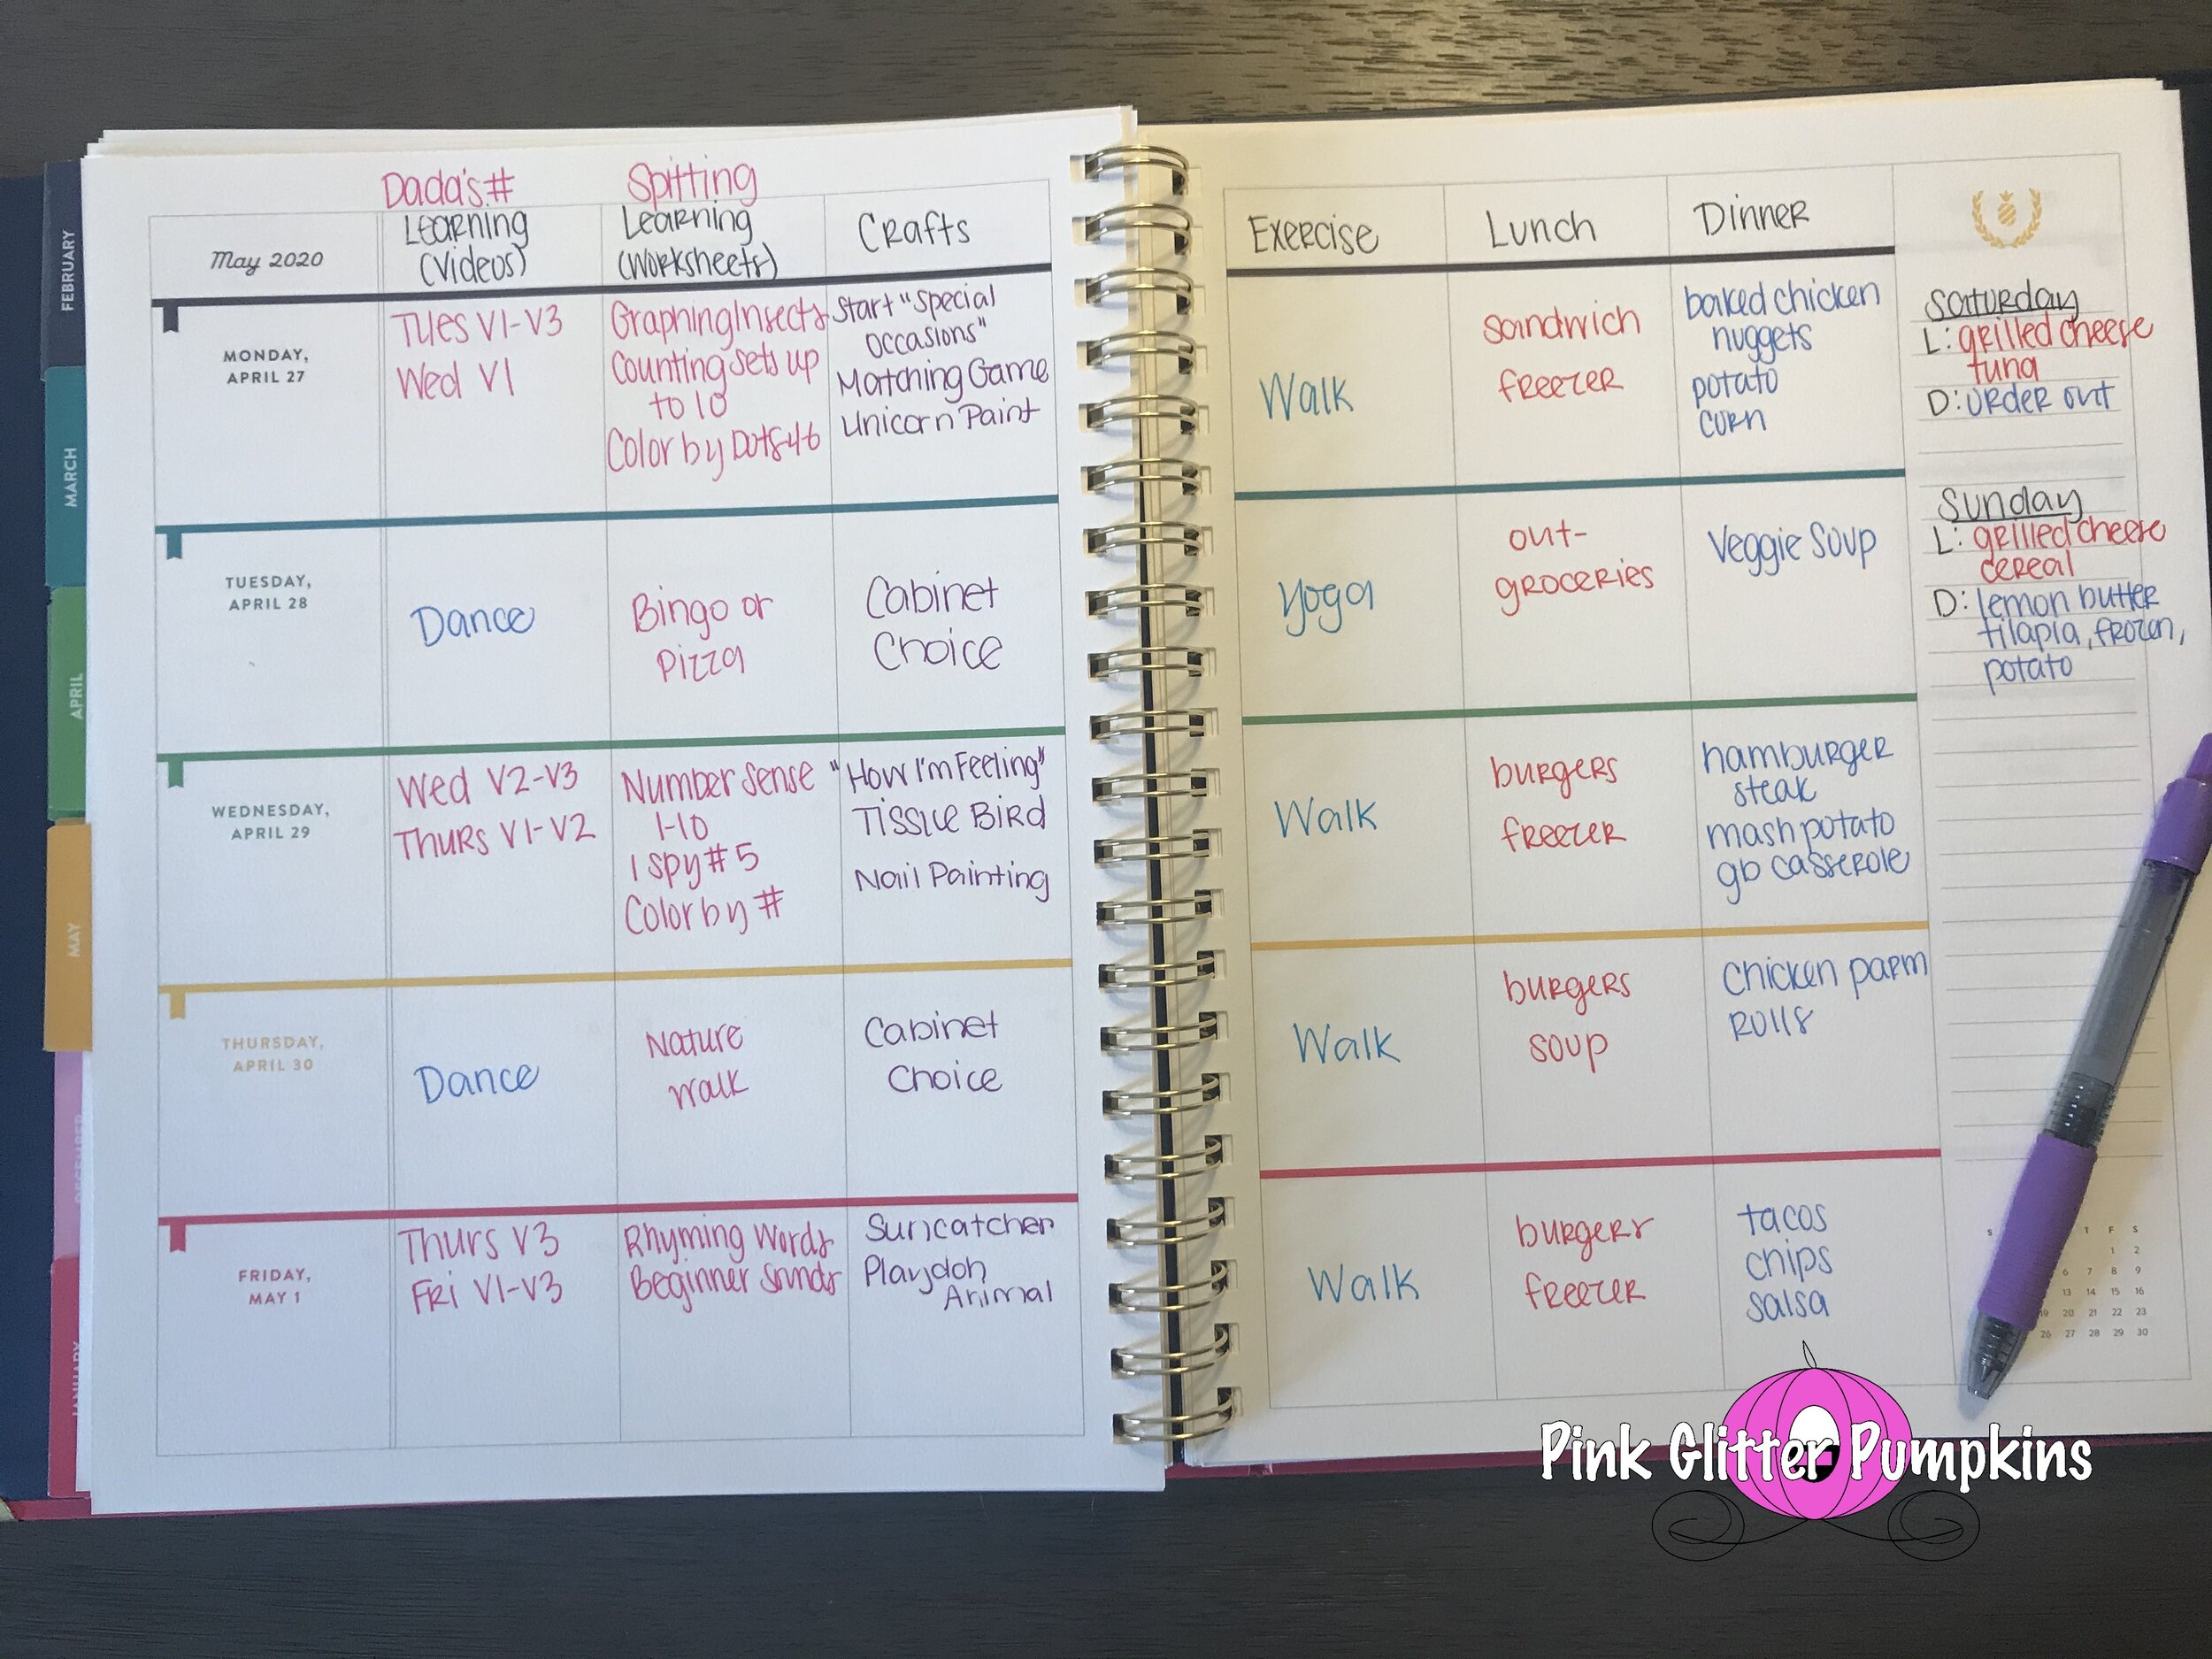 Dada's# Spitting
May 2020
Learning
(Videos)
Learning
(Worksheets)
Crafts
MONDAY,
APRIL 27
Tues V1-V3
Wed V1
Graphing Insects
Counting sets up
to 10
Color by Dots 4-6
Start "Special
Occasions"
Matching Game
Unicorn Paint
TUESDAY,
APRIL 28
Dance
Bingo or
Pizza
Cabinet
Choice
WEDNESDAY,
APRIL 29
Wed V2-V3
Thurs V1-V2
Number Sense
1-10
I spy #5
Color by #
"How I'm Feeling"
Tissue Bird
Nail Painting
THURSDAY,
APRIL 30
Dance
Nature
Walk
Cabinet
Choice
FRIDAY,
MAY 1
Thurs V3
Fri V1-V3
Rhyming Words
Beginner
Suncatcher
Playdoh
Animal
FEBRUARY
MARCH
APRIL
MAY
DECEMBER
JANUARY
Exercise
Lunch
Dinner
Walk
sandwich
freezer
baked chicken
nuggets
potato
corn
Yoga
out-
groceries
Veggie Soup
Walk
burgers
freezer
hamburger
steak
mash potato
gb casserole
Walk
burgers
soup
Chicken parm
Rolls
Walk
burgers
freezer
tacos
chips
salsa
Saturday
L: grilled cheese
tuna
D: Order out
Sunday
L: grilled cheese
cereal
D: lemon butter
tilapia, frozen,
potato
S T F S
1 2
6 7 8 9
13 14 15 16
19 20 21 22 23
26 27 28 29 30
Pink Glitter Pumpkins